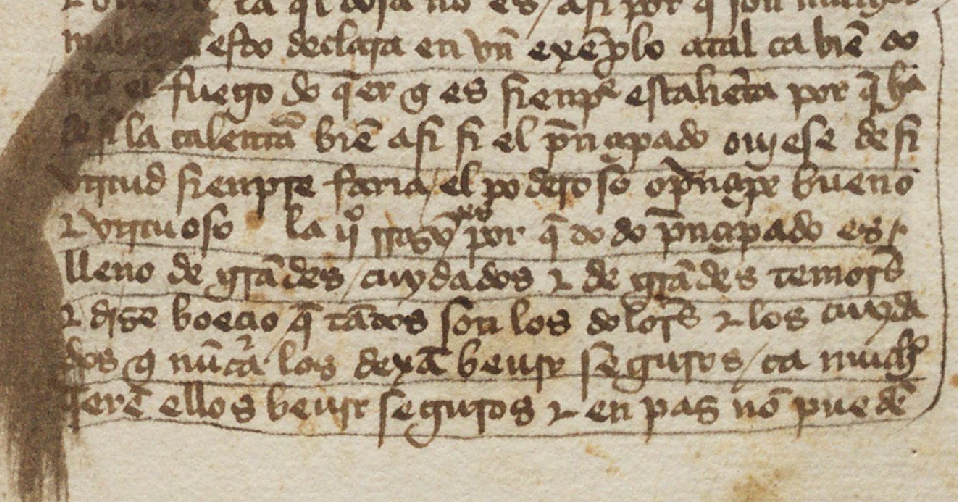 la q̄l cosa no es / asi por q̄ son muchos
esto declara en vn̄ exēplo atal ca biē do
el fuego do q̄er q̄ es sienpr̄ escaliēta por q̄ ha
de si la calentā biē asi si el pn̄çipado ouiese de si
virtud sienpre faria / el poderoso o pn̄çipe bueno
⁊ virtuoso la ijª por q̄ do do pn̄çipado es /
lleno de grādes / cuydados ⁊ de grādes temors̄
⁊ dise boeçio q̄ tātos son los dolors̄ ⁊ los cuyda
dos q̄ nūca los dexā beuir seguros / ca much̄
q̄erē ellos beuir seguros ⁊ en pas nō puedē